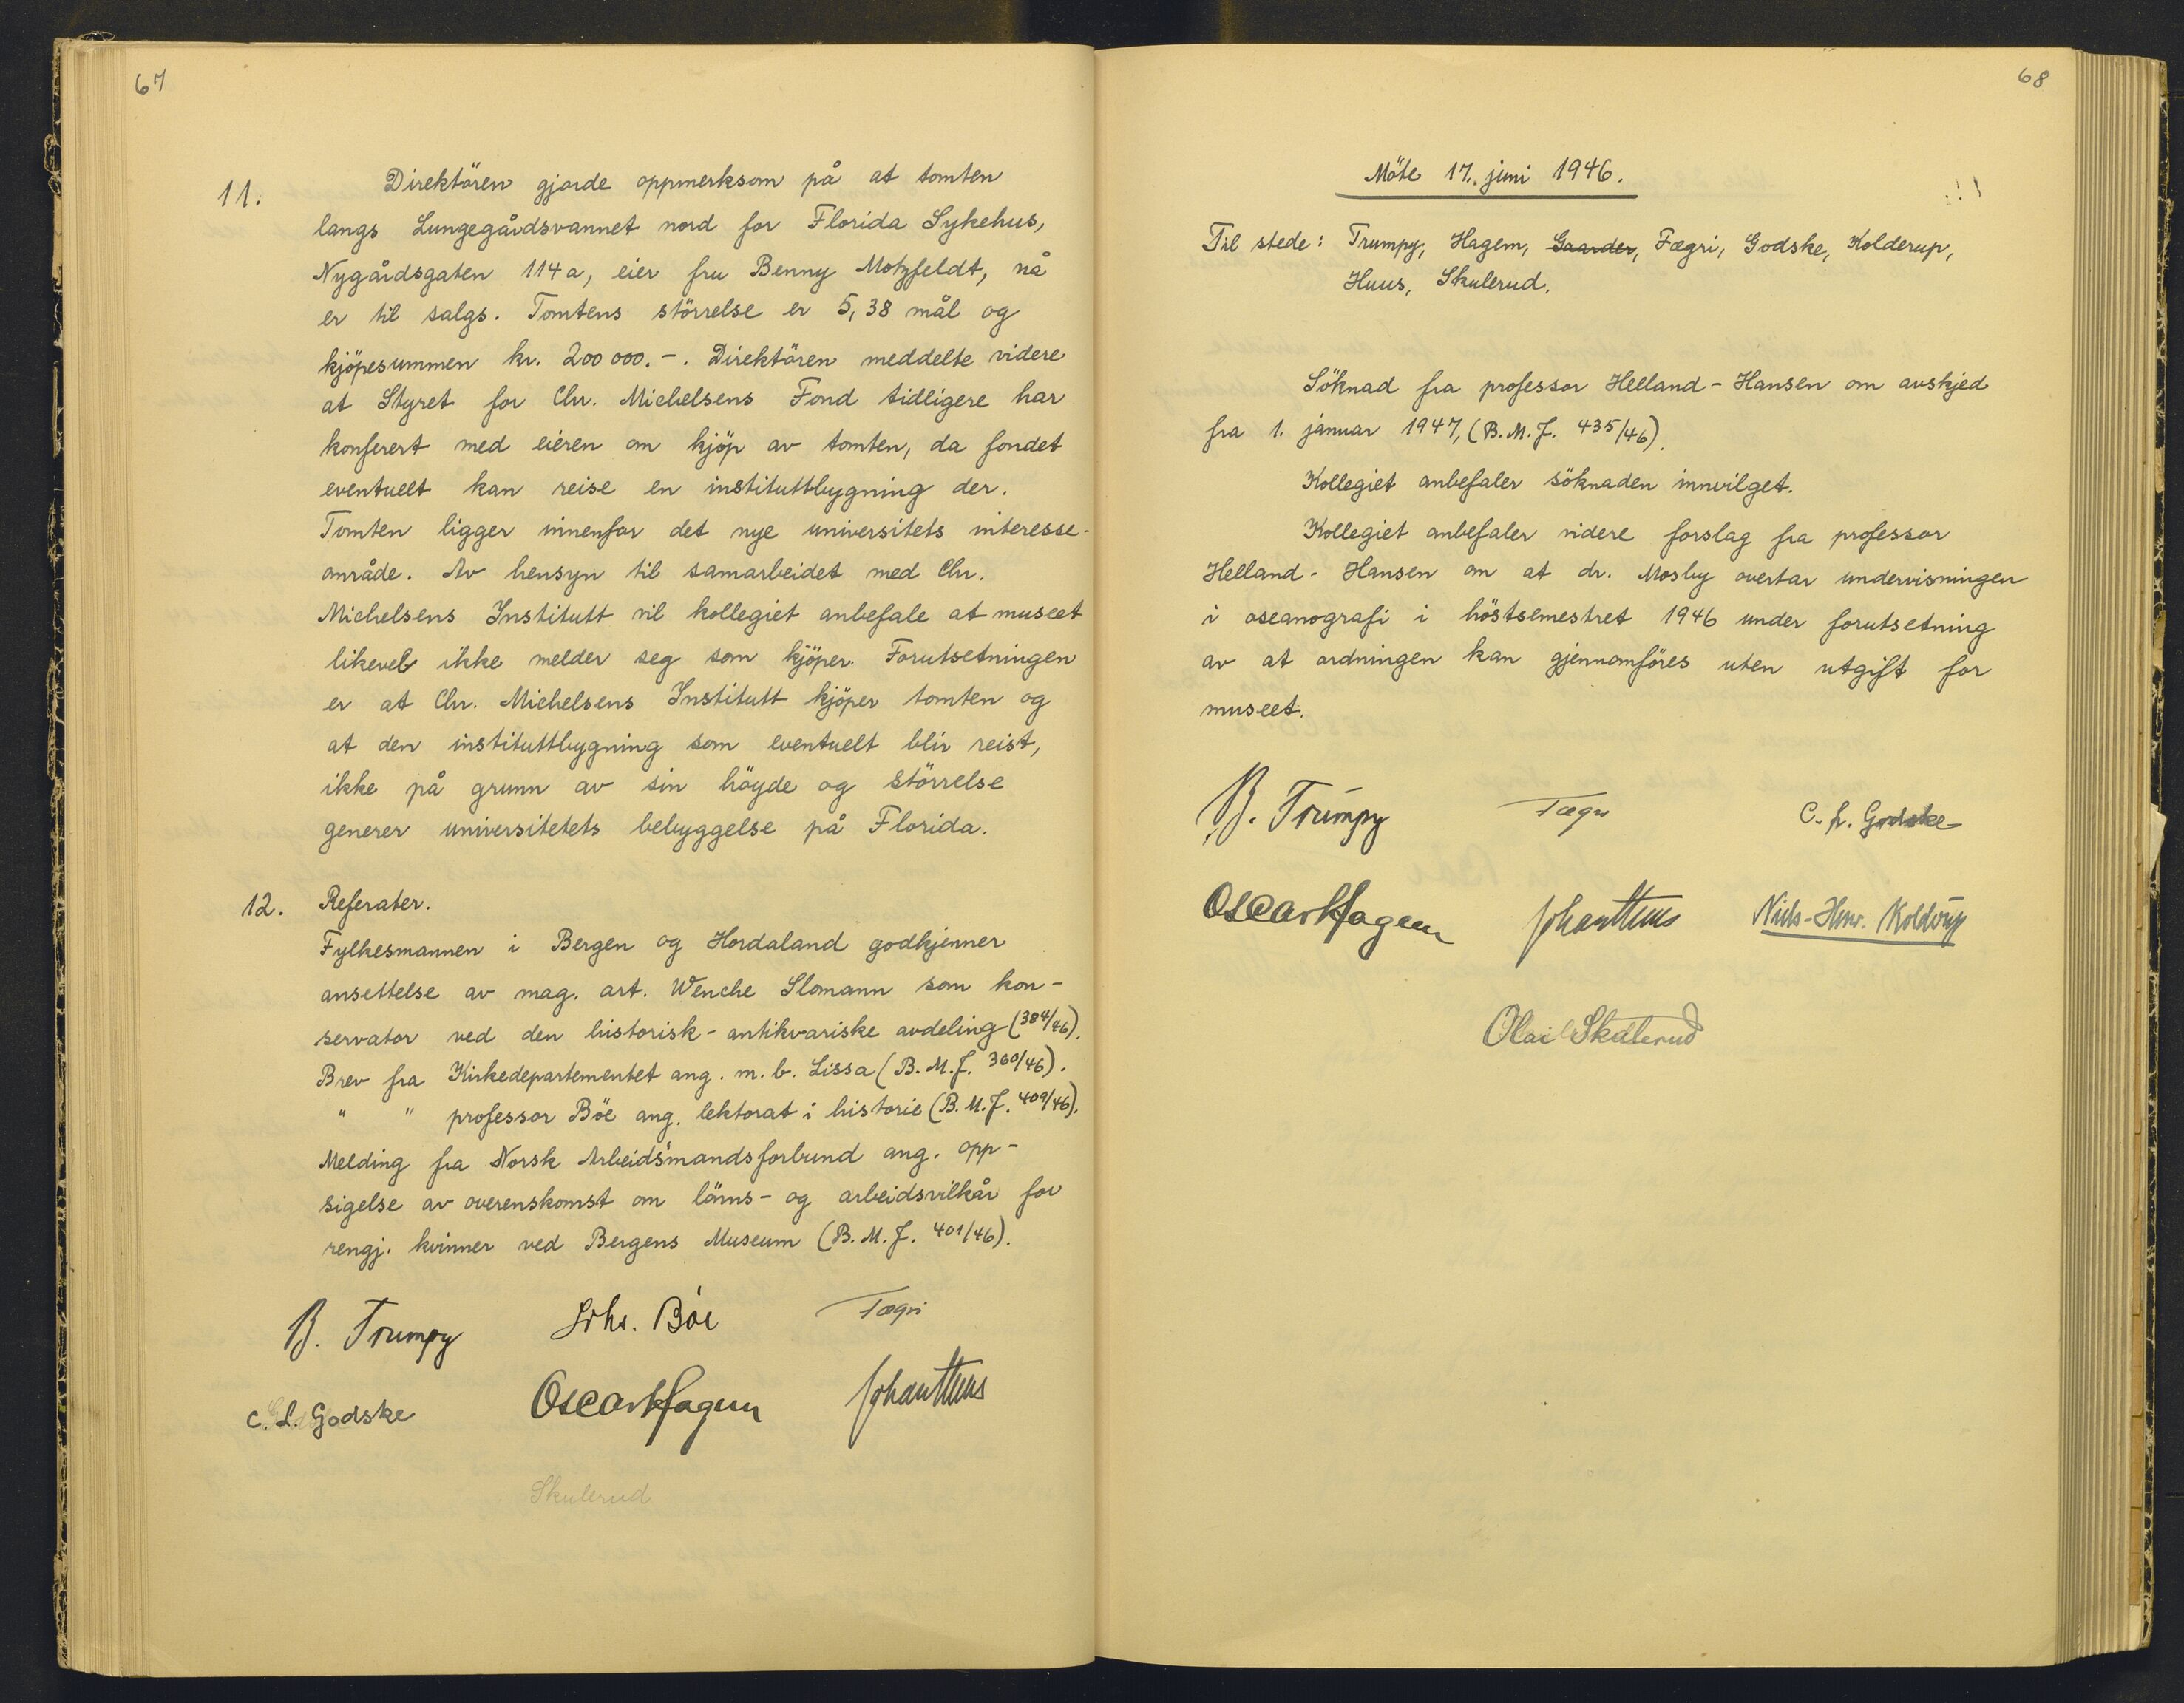 67
11. Direktören gjorde oppmerksom på at tomten
langs Lungegårdsvannet nord for Florida Sykehus,
Nygårdsgaten 114a, eier fru Benny Motzfeldt, nå
er til salgs. Tomtens störrelse er 5,38 mål og
kjöpesummen kr. 200 000.-. Direktören meddelte videre
at Styret for Chr. Michelsens Fond tidligere har
konferert med eieren om kjöp av tomten, da fondet
eventuelt kan reise en instituttbygning der.
Tomten ligger innenfor det nye universitets interesse-
område. Av hensyn til samarbeidet med Chr.
Michelsens Institutt vil kollegiet anbefale at museet
likevel ikke melder seg som kjöper. Forutsetningen
er at Chr. Michelsens Institutt kjöper tomten og
at den instituttbygning som eventuelt blir reist,
ikke på grunn av sin höyde og störrelse
generer universitetets bebyggelse på Florida.
12. Referater.
Fylkesmannen i Bergen og Hordaland godkjenner
ansettelse av mag. art. Wenche Slomann som kon-
servator ved den historisk-antikvariske avdeling (384/46).
Brev fra Kirkedepartementet ang. m.b. Lissa (B.M.J. 360/46).
" " professor Böe ang. lektorat i historie (B.M.J. 409/46).
Melding fra Norsk Arbeidsmandsforbund ang. opp-
sigelse av overenskomst om löns- og arbeidsvilkår for
rengj. kvinner ved Bergens Museum (B.M.J. 401/46).
B. Trumpy Johs. Böe Fægri
C. L. Godske Oscar Hagem Johan Huus
Skulerud
68
Möte 17. juni 1946.
Til stede: Trumpy, Hagem, Gaarder, Fægri, Godske, Kolderup,
Huus, Skulerud.
Söknad fra professor Helland-Hansen om avskjed
fra 1. januar 1947, (B.M.J. 435/46).
Kollegiet anbefaler söknaden innvilget.
Kollegiet anbefaler videre forslag fra professor
Helland-Hansen om at dr. Mosby overtar undervisningen
i oseanografi i höstsemestret 1946 under forutsetning
av at ordningen kan gjennomföres uten utgift for
museet.
B. Trumpy Fægri C. L. Godske
Oscar Hagem Johan Huus Niels-Henr. Kolderup
Olai Skulerud